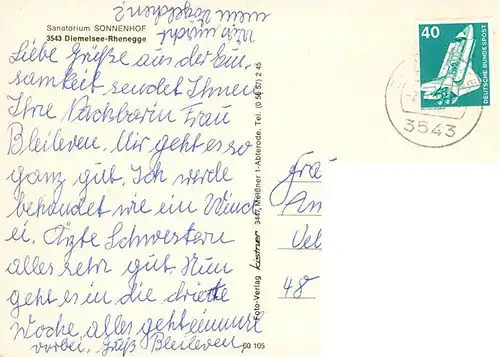 Sanatorium SONNENHOF
3543 Diemelsee-Rhenegge
mein Vögelchen?
Liebe Grüße aus der Ein-
samkeit sendet Ihnen
Ihre Nachbarin Frau
Bleileven. Mir geht es so
ganz gut. Ich werde
behandet wie ein Wind
ei. Ärzte Schwestern
alles sehr gut. Nun
geht es in die driete
Woche, alles geht einmal
vorbei. Gruß Bleileven
60 105
Foto-Verlag kistner 3447 Meißner 1-Abterode. Tel. (0 56 57) 2 45
40
DEUTSCHE BUNDESPOST
3543
Frau
An
Vel
48